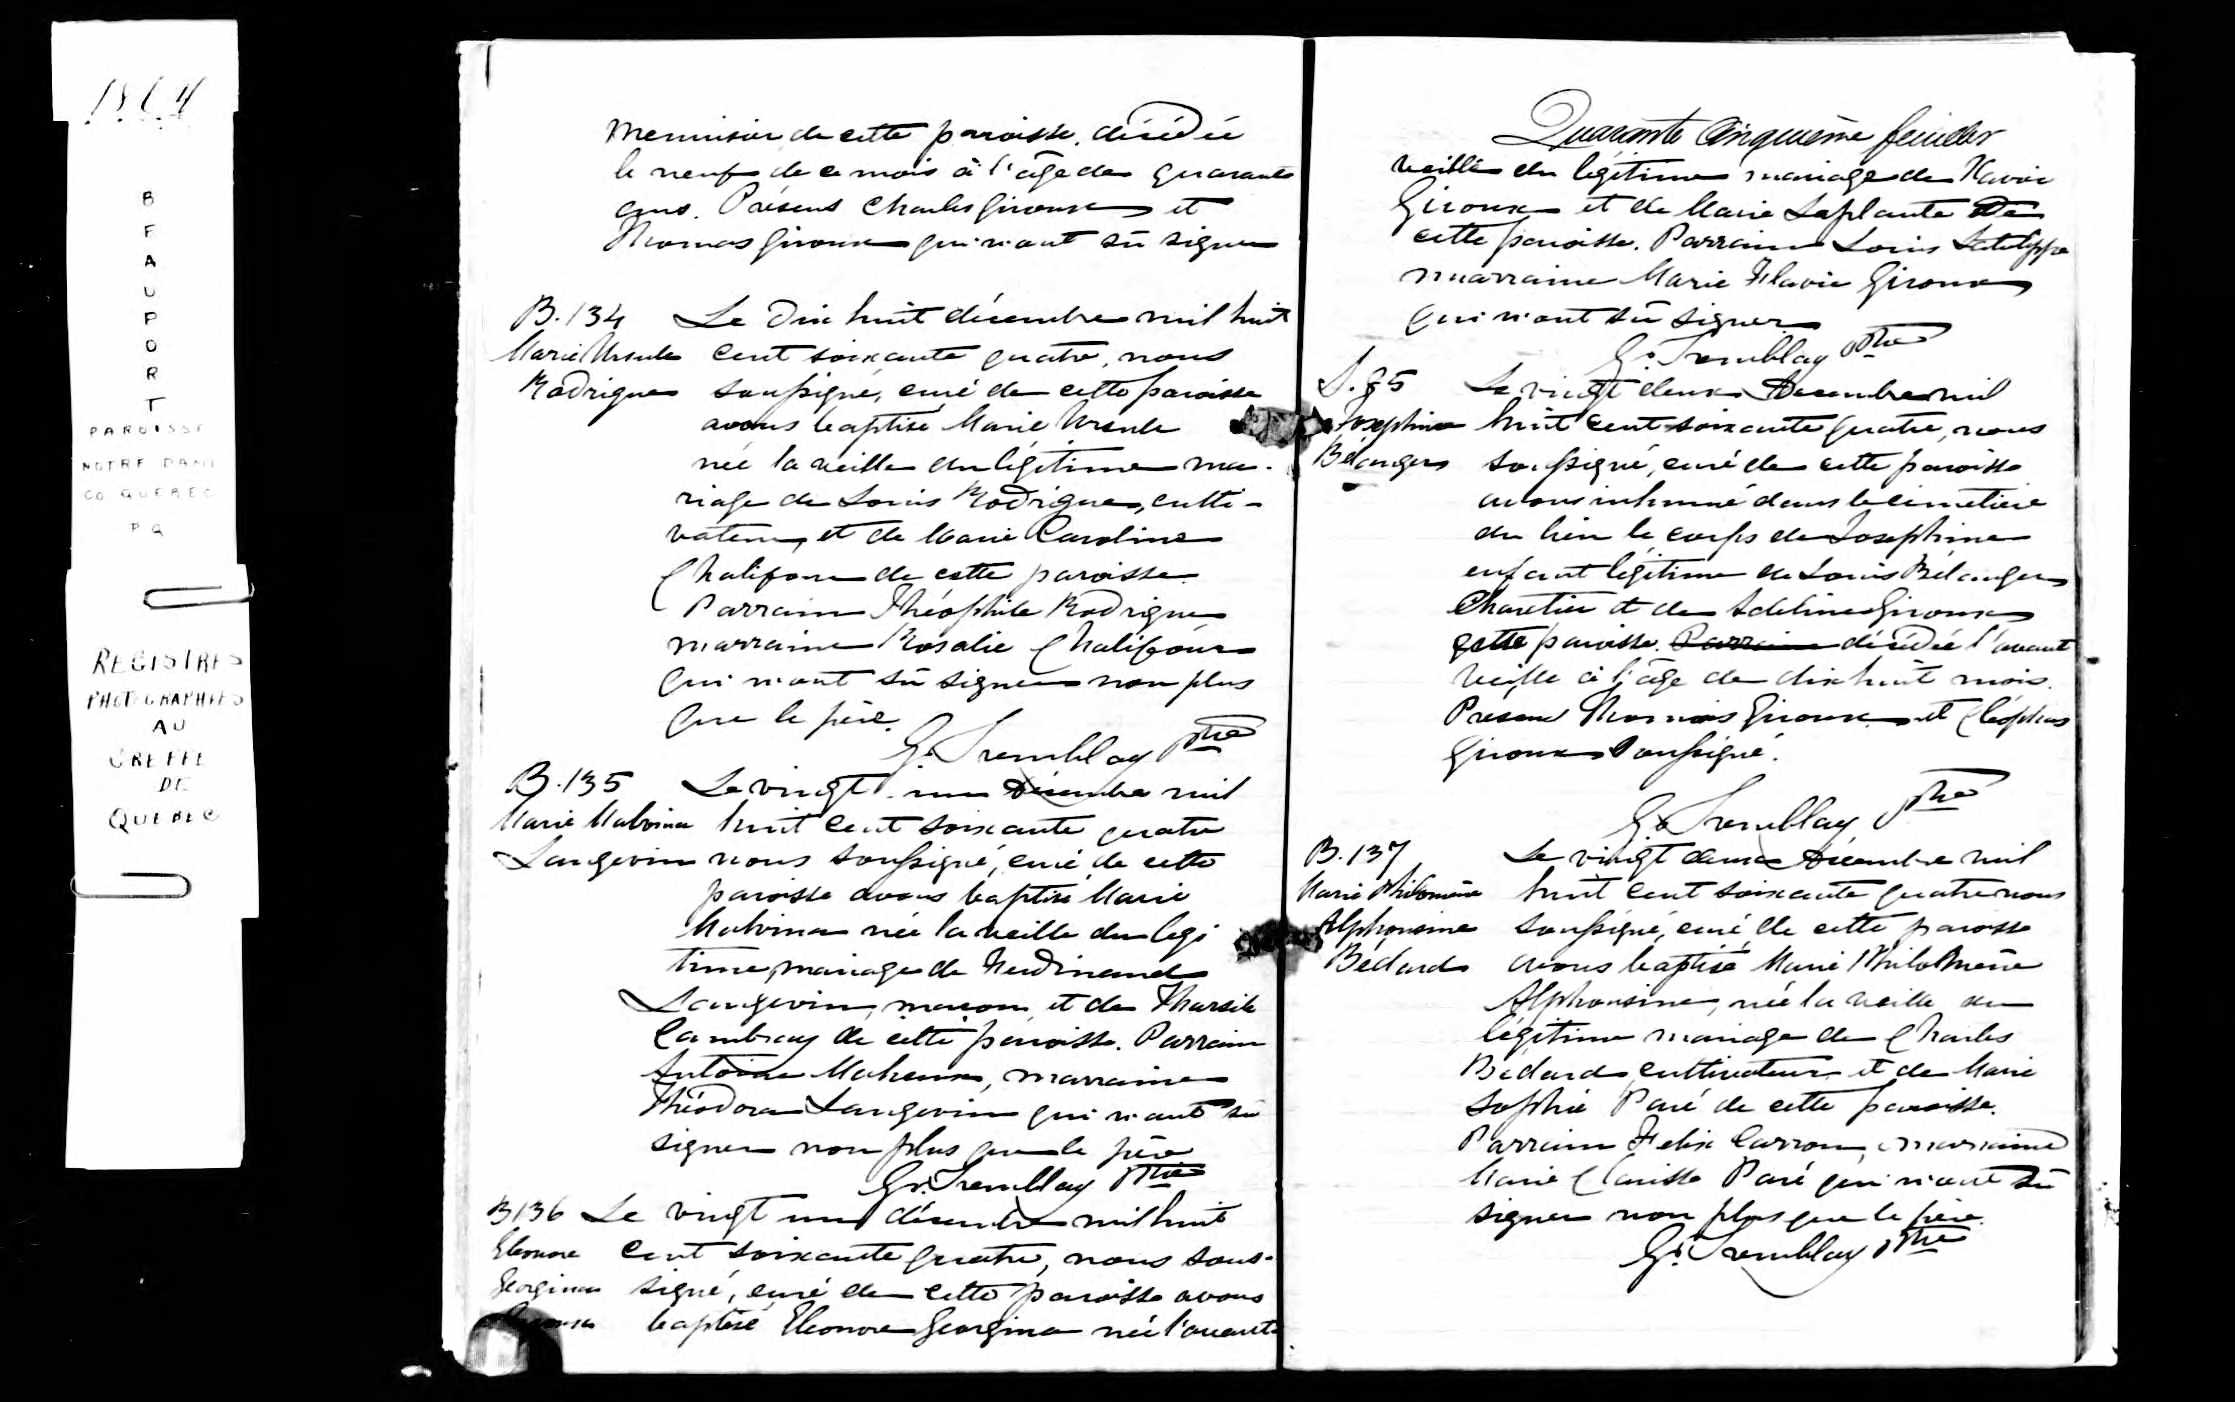 1864
BEAUPORT
PAROISSE
NOTRE DAME
CO QUEBEC
P Q
REGISTRES
PHOTOGRAPHIES
AU
GREFFE
DE
QUEBEC
Menuisier de cette paroisse, décédée
le neuf de ce mois à l'âge de quarante
ans. Présens Charles Giroux et
Thomas Giroux qui n'ont sû signer
B.134 Le Dix huit décembre mil huit
Marie Ursule cent soixante quatre, nous
Rodrigue soussigné, curé de cette paroisse
avons baptisé Marie Ursule
née la veille du légitime ma-
riage de Louis Rodrigue, culti-
vateur, et de Marie Caroline
Chalifour de cette paroisse.
Parrain Théophile Rodrigue
marraine Rosalie Chalifour
qui n'ont sû signer non plus
que le père.
G. Tremblay Ptre
B.135 Le vingt un Décembre mil
Marie Malvina huit cent soixante quatre
Langevin nous soussigné, curé de cette
paroisse avons baptisé Marie
Malvina née la veille du légi
time mariage de Ferdinand
Langevin, maçon, et de Tharsile
Cambray de cette paroisse. Parrain
Antoine Maheux, marraine
Théodora Langevin qui n'ont sû
signer non plus que le père
G. Tremblay Ptre
B136 Le vingt un décembre mil huit
Eleonore cent soixante quatre, nous sous-
Georgina signé, curé de cette paroisse avons
Giroux baptisé Eleonore Georgina née l'avant
Quarante Cinquième feuillet
veille du légitime mariage de Xavier
Giroux et de Marie Laplante De
cette paroisse. Parrain Louis
marraine Marie Flavie Giroux
qui n'ont sû signer
G. Tremblay Ptre
S.85 Le vingt deux Decembre mil
Josephine huit cent soixante quatre, nous
Bélanger soussigné, curé de cette paroisse
avons inhumé dans le cimetière
du lieu le corps de Josephine
enfant légitime de Louis Bélanger
Charetier et de Adeline Giroux
cette paroisse. Parrain décédée l'avant
veille à l'âge de dix huit mois.
Présens Thomas Giroux et Cléophas
Giroux Soussigné.
G. Tremblay Ptre
B.137 Le vingt deux Décembre mil
Marie Philomène huit cent soixante quatre nous
Alphonsine soussigné, curé de cette paroisse
Bédard avons baptisé Marie Philomène
Alphonsine, née la veille du
légitime mariage de Charles
Bédard cultivateur et de Marie
Sophie Paré de cette paroisse.
Parrain Felix Carron, marraine
Marie Clarisse Paré qui n'ont sû
signer non plus que le père.
G. Tremblay Ptre